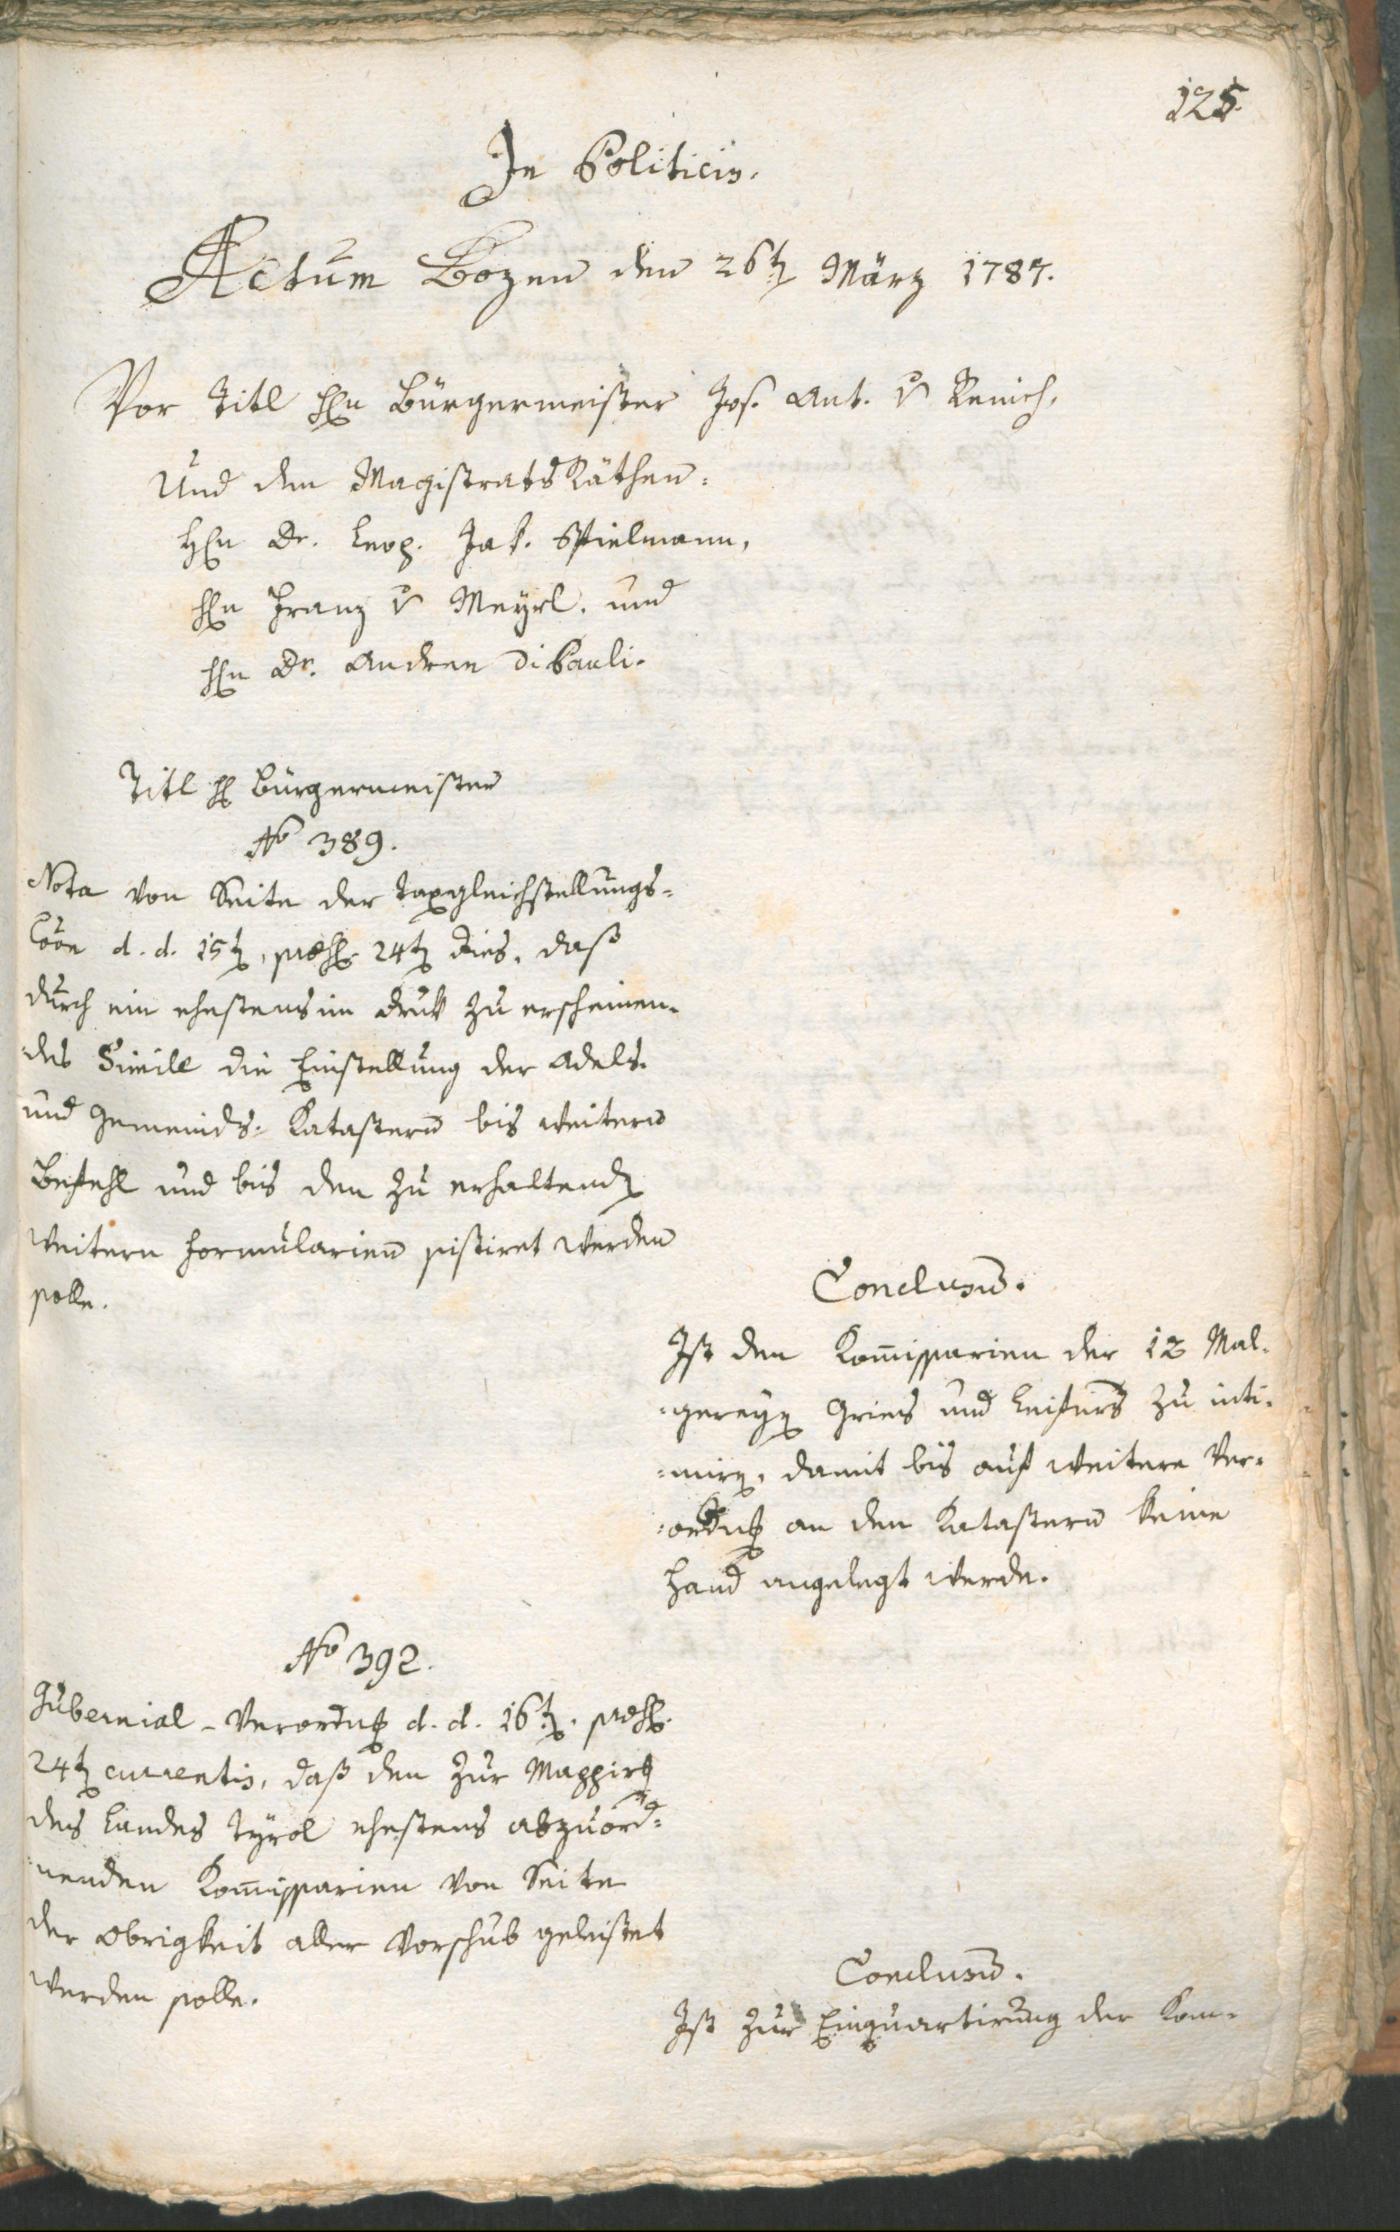 125.
In Politicis.
Actum Bozen den 26t März 1787.
Vor Titl Hn Bürgermeister Jos. Ant. v Remich,
Und den Magistrats Räthen:
Hn Dr. Leop. Jak. Spielmann,
Hn Franz v Meyrl. und
Hn Dr. Andreen DiPauli.
Titl H Bürgermeister
No 389.
Nota von Seite der Taxgleichstellungs-
Coon d. d. 15t, præs. 24t dies, daß
durch ein ehestens im druk zu erscheinen-
des Simile die Einstellung der Adels-
und Gemeinds-Katastern bis weitern
Befehl und bis den zu erhaltend
weitern Formularien sistiret werden
solle.
Conclusum.
Ist den Kom̄issarien der 12 Mal-
greyen Gries und Leifers zu inti-
miren, damit bis auf weitere Ver-
ordng an den Katastern keine
Hand angelegt werde.
No 392.
Gubernial-Verordng d. d. 16t. præs.
24t currentis, daß den zur Mappirg
des Landes Tyrol ehestens abzuord-
nenden Kom̄issarien von Seite
der Obrigkeit aller Vorschub geleistet
werden solle.
Conclusum.
Ist zur Einquartirung der Kom-